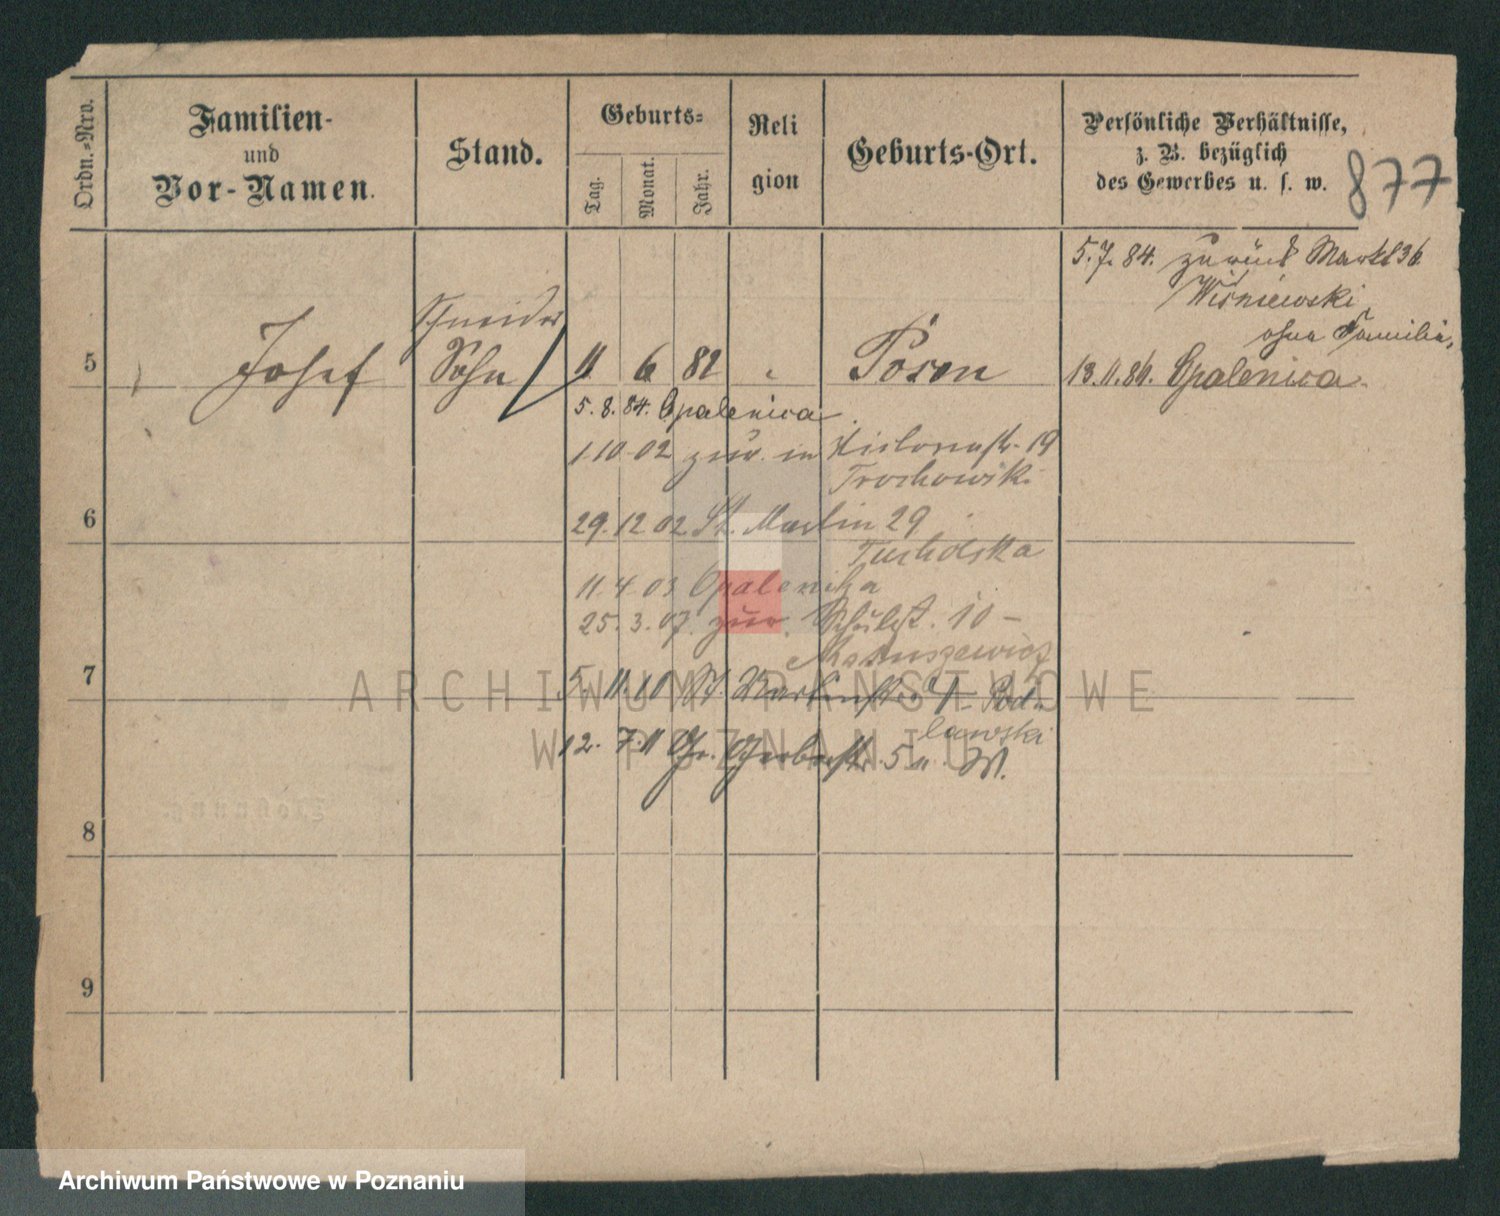 Ordn.-Nro.
Familien-
und
Vor-Namen.
Stand.
Geburts-
Tag.
Monat.
Jahr.
Reli
gion
Geburts-Ort.
Persönliche Verhältnisse,
z. B. bezüglich
des Gewerbes u. s. w.
877
5.7.84. zurück Markt 36
Wisniewski
ohne Familie,
13.11.84. Opalenica
5 Josef Schneider Sohn 11 6 82 " Posen
5.8.84. Opalenica
1 10 02 zur. in 19
Trochowski
6
29.12 02 St. Martin 29
Tucholska
11.4 03 Opalenitza
25.3.07. zur. Schulst. 10 -
Matuszewicz
7
5.11.10 St. Martinstr.
lawski
12.7.11 Gr. Gerberstr. 5 W.
8
9
ARCHIWUM PAŃSTWOWE
W POZNANIU
Archiwum Państwowe w Poznaniu